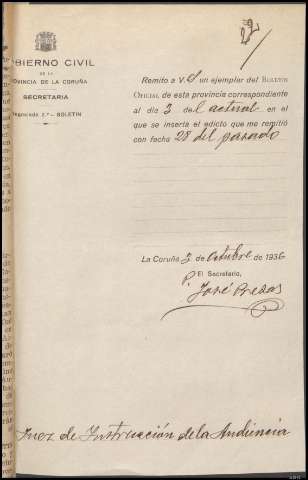 22
BIERNO CIVIL
DE LA
OVINCIA DE LA CORUÑA
SECRETARIA
Negociado 2.º - BOLETIN
Remito a V. S un ejemplar del BOLETIN
OFICIAL de esta provincia correspondiente
al día 3 del actual en el
que se inserta el edicto que me remitió
con fecha 28 del pasado
La Coruña 3 de Octubre de 1936
P. El Secretario,
José
Juez de Instrucción de la Audiencia